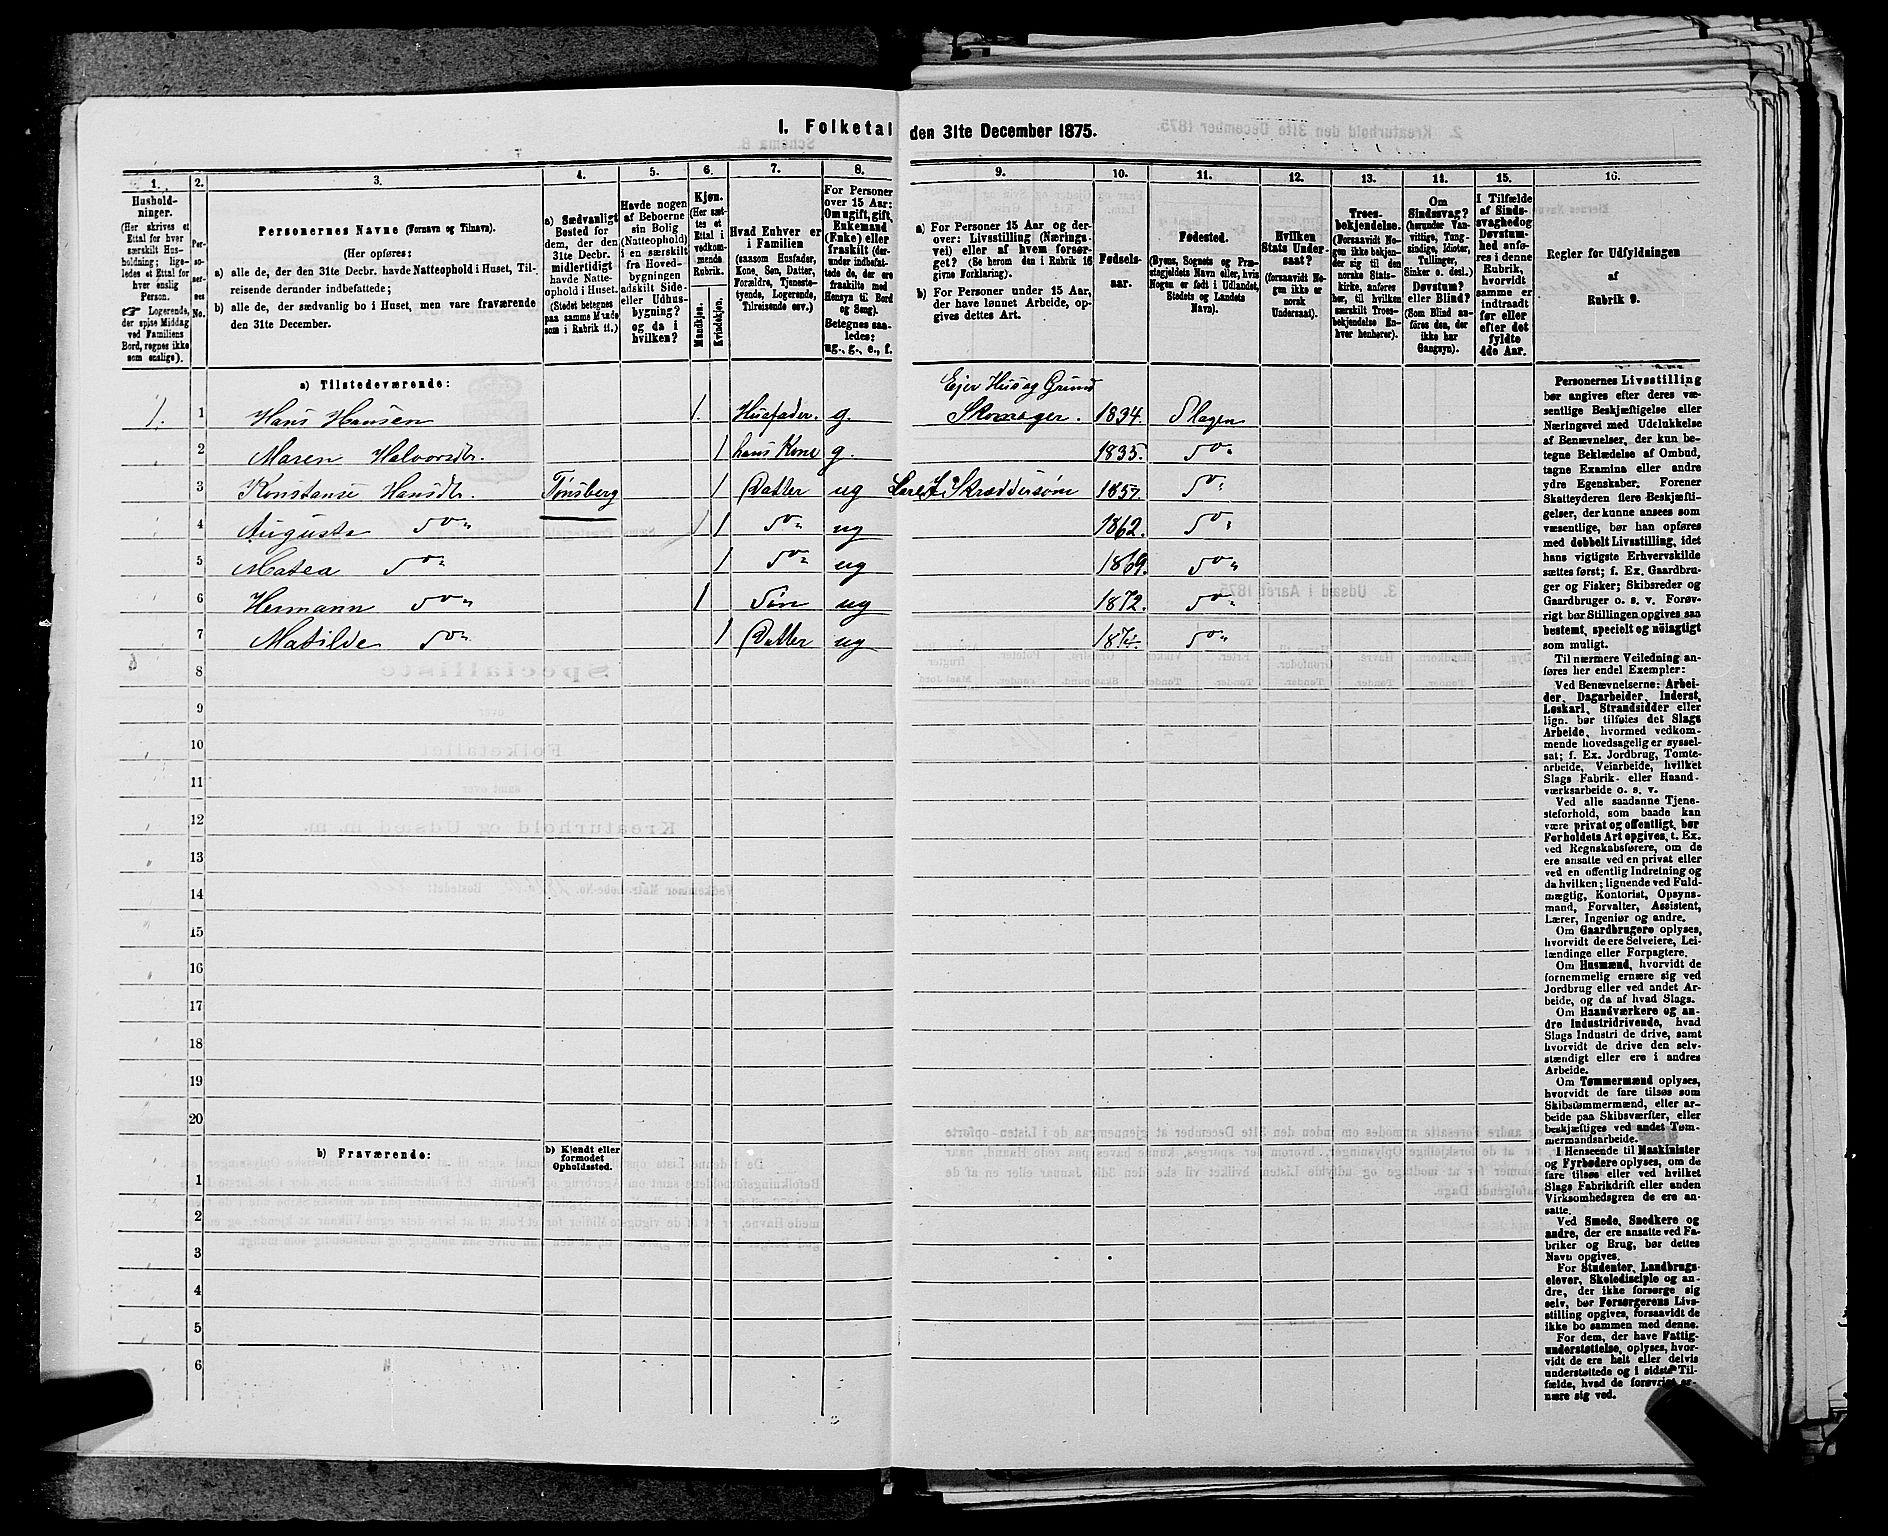 I. Folketal den 31te December 1875.
1. 2. 3. 4. 5. 6. 7. 8. 9. 10. 11. 12. 13. 14. 15. 16.
Hushold-
ninger.
(Her skrives et
Ettal for hver
særskilt Hus-
holdning; lige-
ledes et Ettal for
hver enslig
Person.
☞ Logerende,
der spise Middag
ved Familiens
Bord, regnes ikke
som enslige).
Per-
so-
ner-
nes
No.
Personernes Navne (Fornavn og Tilnavn).
(Her opføres:
a) alle de, der den 31te Decbr. havde Natteophold i Huset, Til-
reisende derunder indbefattede;
b) alle de, der sædvanlig bo i Huset, men vare fraværende
den 31te December.
a) Sædvanligt
Bosted for
dem, der den
31te Decbr.
midlertidigt
havde Natte-
ophold i Huset.
(Stedet betegnes
paa samme Maade
som i Rubrik 11.)
Havde nogen
af Beboerne
sin Bolig
(Natteophold)
i en særskilt
fra Hoved-
bygningen
adskilt Side-
eller Udhus-
bygning?
og da i
hvilken?
Kjøn.
(Her sæt-
tes et
Ettal i
vedkom-
mende
Rubrik.
Mandkjøn.
Kvindekjøn.
Hvad Enhver er
i Familien
(saasom Husfader,
Kone, Søn, Datter,
Forældre, Tjeneste-
tyende, Logerende,
Tilreisende osv.)
For Personer
over 15 Aar:
Om ugift, gift,
Enkemand
(Enke) eller
fraskilt (der-
under indbefat-
tede de, der ere
fraskilte med
Hensyn til Bord
og Seng).
Betegnes saa-
ledes:
ug., g., e., f.
a) For Personer 15 Aar og der-
over: Livsstilling (Nærings-
vei) eller af hvem forsør-
get? (Se herom den i Rubrik 16
givne Forklaring).
b) For Personer under 15 Aar,
der have lønnet Arbeide, op-
gives dettes Art.
Fødsels-
aar.
Fødested.
(Byens, Sognets og Præ-
stegjeldets Navn eller, hvis
Nogen er født i Udlandet,
Stedets og Landets
Navn).
Hvilken
Stats Under-
saat?
(forsaavidt No-
gen ikke er
norsk
Undersaat).
Troes-
bekjendelse.
(Forsaavidt No-
gen ikke bekjen-
der sig til den
norske Stats-
kirke, anføres
her, til hvilken
særskilt Troes-
bekjendelse En-
hver henhører).
Om
Sindssvag?
(herunder Van-
vittige, Tung-
sindige, Idioter,
Tullinger,
Sinker o. desl.)
Døvstum?
eller Blind?
(Som Blind an-
føres den, der
ikke har
Gangsyn).
I Tilfælde
af Sinds-
svaghed og
Døvstum-
hed anfø-
res i denne
Rubrik,
hvorvidt
samme er
indtraadt
før eller
efter det
fyldte
4de Aar.
Regler for Udfyldningen
af
Rubrik 9.
a) Tilstedeværende:
Ejer Hus og Grund
1. 1 Hans Hansen 1. Husfader. g. Skomager. 1834. Slagen
2 Maren Halvorsdtr. 1 hans Kone g. 1835. Do
3 Konstanse Hansdtr. Tønsberg 1 Datter ug Skræddersøm 1857. Do
4 Augusta Do 1 Do ug 1862. Do
5 Matea Do 1 Do ug 1869. Do
6 Hermann Do 1 Søn ug 1872. Do
7 Matilde Do 1 Datter ug Do
8
9
10
11
12
13
14
15
16
17
18
19
20
b) Fraværende:
b) Kjendt eller
formodet
Opholdssted.
1
2
3
4
5
6
Personernes Livsstilling
bør angives efter deres væ-
sentlige Beskjæftigelse eller
Næringsvei med Udelukkelse
af Benævnelser, der kun be-
tegne Beklædelse af Ombud,
tagne Examina eller andre
ydre Egenskaber. Forener
Skatteyderen flere Beskjæfti-
gelser, der kunne ansees som
væsentlige, bør han opføres
med dobbelt Livsstilling, idet
hans vigtigste Erhvervskilde
sættes først; f. Ex. Gaardbru-
ger og Fisker; Skibsreder og
Gaardbruger o. s. v. Forøv-
rigt bør Stillingen opgives saa
bestemt, specielt og nøiagtigt
som muligt.
Til nærmere Veiledning an-
føres her endel Exempler:
Ved Benævnelserne: Arbei-
der, Dagarbeider, Inderst,
Løskarl, Strandsidder eller
lign. bør tilføies det Slags
Arbeide, hvormed vedkom-
mende hovedsagelig er syssel-
sat; f. Ex. Jordbrug, Tomte-
arbeide, Veiarbeide, hvilket
Slags Fabrik- eller Haand-
værksarbeide o. s. v.
Ved alle saadanne Tjene-
steforhold, som baade kan
være privat og offentligt, bør
Forholdets Art opgives, t. Ex.
ved Regnskabsførere, om de
ere ansatte ved en privat eller
ved en offentlig Indretning og
da hvilken; lignende ved Fuld-
mægtig, Kontorist, Opsyns-
mand, Forvalter, Assistent,
Lærer, Ingeniør og andre.
Om Gaardbrugere oplyses,
hvorvidt de ere Selveiere, Lei-
lændinge eller Forpagtere.
Om Husmænd, hvorvidt de
fornemmelig ernære sig ved
Jordbrug eller ved andet Ar-
beide, og da af hvad Slags.
Om Haandværkere og an-
dre Industridrivende, hvad
Slags Industri de drive, samt
hvorvidt de drive den selv-
stændigt eller ere i andres
Arbeide.
Om Tømmermænd oplyses,
hvorvidt de fare tilsøs som
Skibstømmermænd, eller ar-
beide paa Skibsværfter, eller
beskjæftiges ved andet Tøm-
mermandsarbeide.
I Henseende til Maskinister
og Fyrbødere oplyses, om de
fare tilsøs eller ved hvilket
Slags Fabrikdrift eller anden
Virksomhedsgren de ere an-
satte.
Ved Smede, Snedkere og
andre, der ere ansatte ved Fa-
briker og Brug, bør dettes
Navn opgives.
For Studenter, Landbrugs-
elever, Skoledisciple og an-
dre, der ikke forsørge sig
selv, bør Forsørgerens Livs-
stilling opgives, forsaavidt de
ikke bo sammen med denne.
For dem, der have Fattig-
understøttelse, oplyses, hvor-
vidt de ere helt eller delvis
understøttede og i sidste Til-
fælde, hvad de forøvrigt er-
nære sig ved.